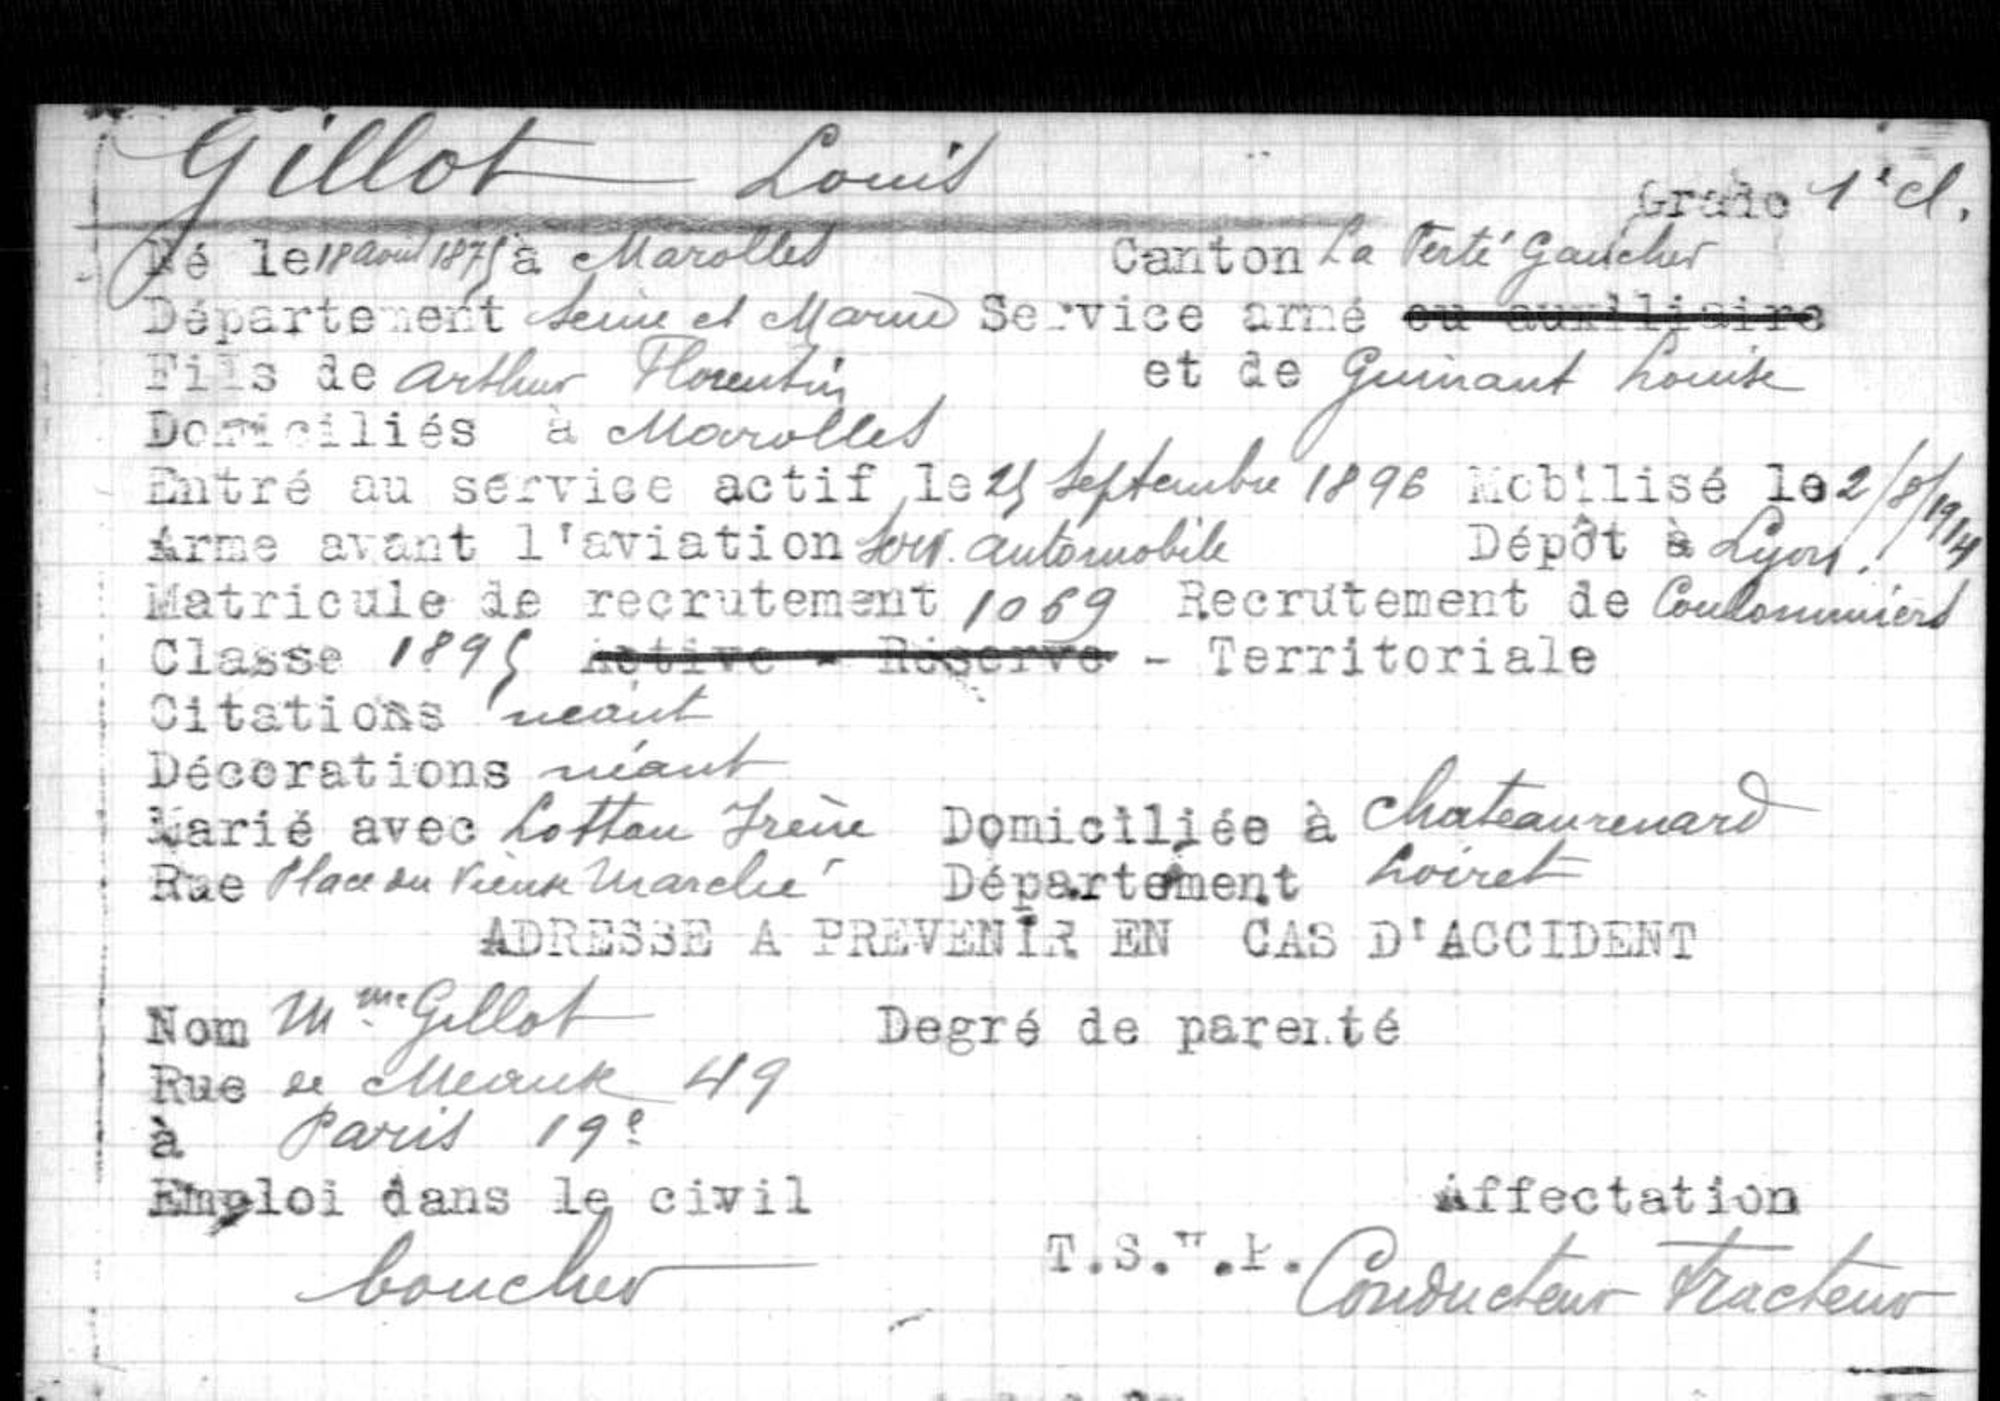 Gillot Louis
Grade 1e cl.
Né le 18 août 1875 à Marolles Canton La Ferté Gaucher
Département Seine et Marne Service armé ou auxiliaire
Fils de Arthur Florentin et de Guinant Louise
Domiciliés à Marolles
Entré au service actif le 25 Septembre 1896 Mobilisé le 2/8/1914
Arme avant l'aviation Serv. automobile Dépôt à Lyon.
Matricule de recrutement 1069 Recrutement de Coulommiers
Classe 1895 Active - Réserve - Territoriale
Citations néant
Décorations néant
Marié avec Lottau Irène Domiciliée à Chateaurenard
Rue Place du Vieux Marché Département Loiret
ADRESSE A PREVENIR EN CAS D'ACCIDENT
Nom Mme Gillot Degré de parenté
Rue de Meaux 49
à Paris 19e
Emploi dans le civil Affectation
boucher T.S. Conducteur Tracteur